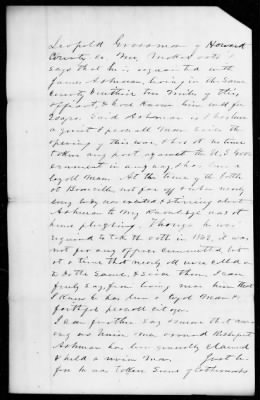 Leopold Grossman of Howard
County Co. Mo. makes oath &
says that he is acquainted with
James Ashman, living in the same
County & within two miles of this
affiant, & have known him well for
years. Said Ashman is & has been
a quiet peaceable man. Since the
opening of this war, has at no time
taken any part against the U.S. Gov
ernment in any way, & has been a
loyal man. At the time of the battle
at Boonville not far off & when nearly
every body was excited & stirring about
Ashman to my knowledge was at
home plughing. Though he was
required to take the oath in 1862, it was
not for any offence committed, but
at a time that nearly all were called on
to do the same, & since then, I can
freely say, from living near him that
I know he has been a loyal man &
faithful peaceable citizen.
I can further say & swear that am
ong us Union men around
Ashman has been generally claimed
& held a union man. Just be
fore he was taken some of